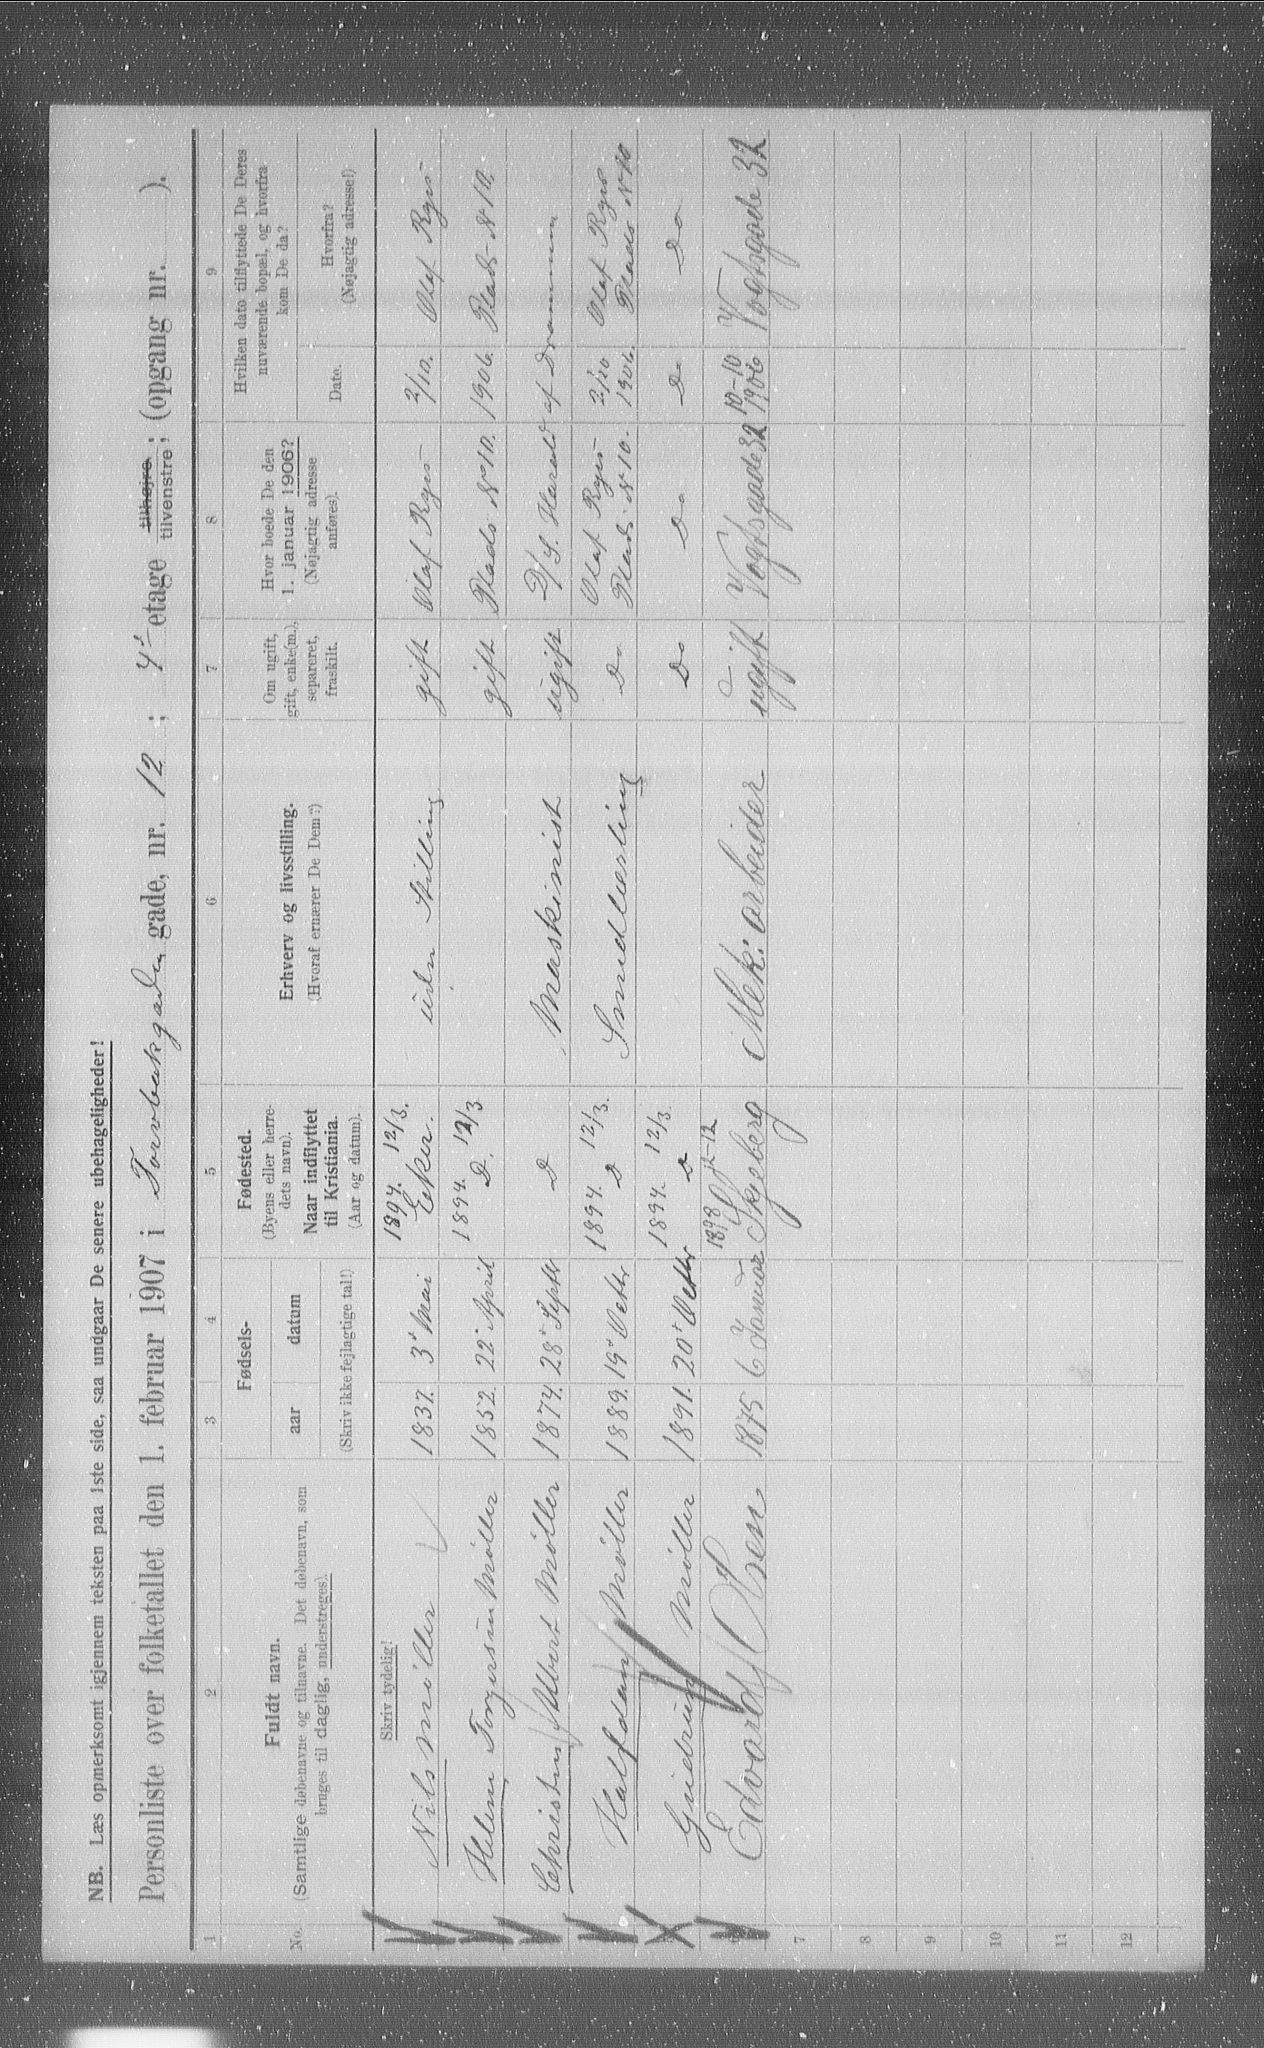 NB. Læs opmerksomt igjennem teksten paa 1ste side, saa undgaar De senere ubehageligheder!
Personliste over folketallet den 1. februar 1907 i Torvbakgaden gade, nr. 12 ; 4' etage tilhøjre tilvenstre; (opgang nr. ).
1 2 3 4 5 6 7 8 9
No.
Fuldt navn.
(Samtlige døbenavne og tilnavne. Det døbenavn, som
bruges til daglig, understreges).
Fødsels-
aar datum
(Skriv ikke fejlagtige tal!)
Fødested.
(Byens eller herre-
dets navn).
Naar indflyttet
til Kristiania.
(Aar og datum).
Erhverv og livsstilling.
(Hvoraf ernærer De Dem?)
Om ugift,
gift, enke(m.),
separeret,
fraskilt.
Hvor boede De den
1. januar 1906?
(Nøjagtig adresse
anføres).
Hvilken dato tilflyttede De Deres
nuværende bopæl, og hvorfra
kom De da?
Dato.
Hvorfra?
(Nøjagtig adresse!)
Skriv tydelig!
Nils Møller 1837. 3' Mai 1894. 12/3. Eker. uden Stilling gift Olaf Ryes 2/10. Olaf Ryes
Helene Torgersen Møller 1852. 22' April 1894. 12/3 D. gift Plads N 10. 1906. Plads N 10.
Christian Albert Møller 1874. 28' Septb D Maskinist ugift D/S. Harald af Drammen
Halfdan Møller 1889. 19' Octbr 1894. 12/3. D Smedlærling Do Olaf Ryes Plads N 10. 2/10 1906. Olaf Ryes Plads N 10
Gudrun Møller 1891. 20' Octbr 1894. 12/3 D Do Do Do Do
Edvard Olsen 1875 6 Januar 1898 12 Skjeberg Mek: arbeider ugift Vogtsgade 32 10-10 1906 Vogtsgade 32
7
8
9
10
11
12